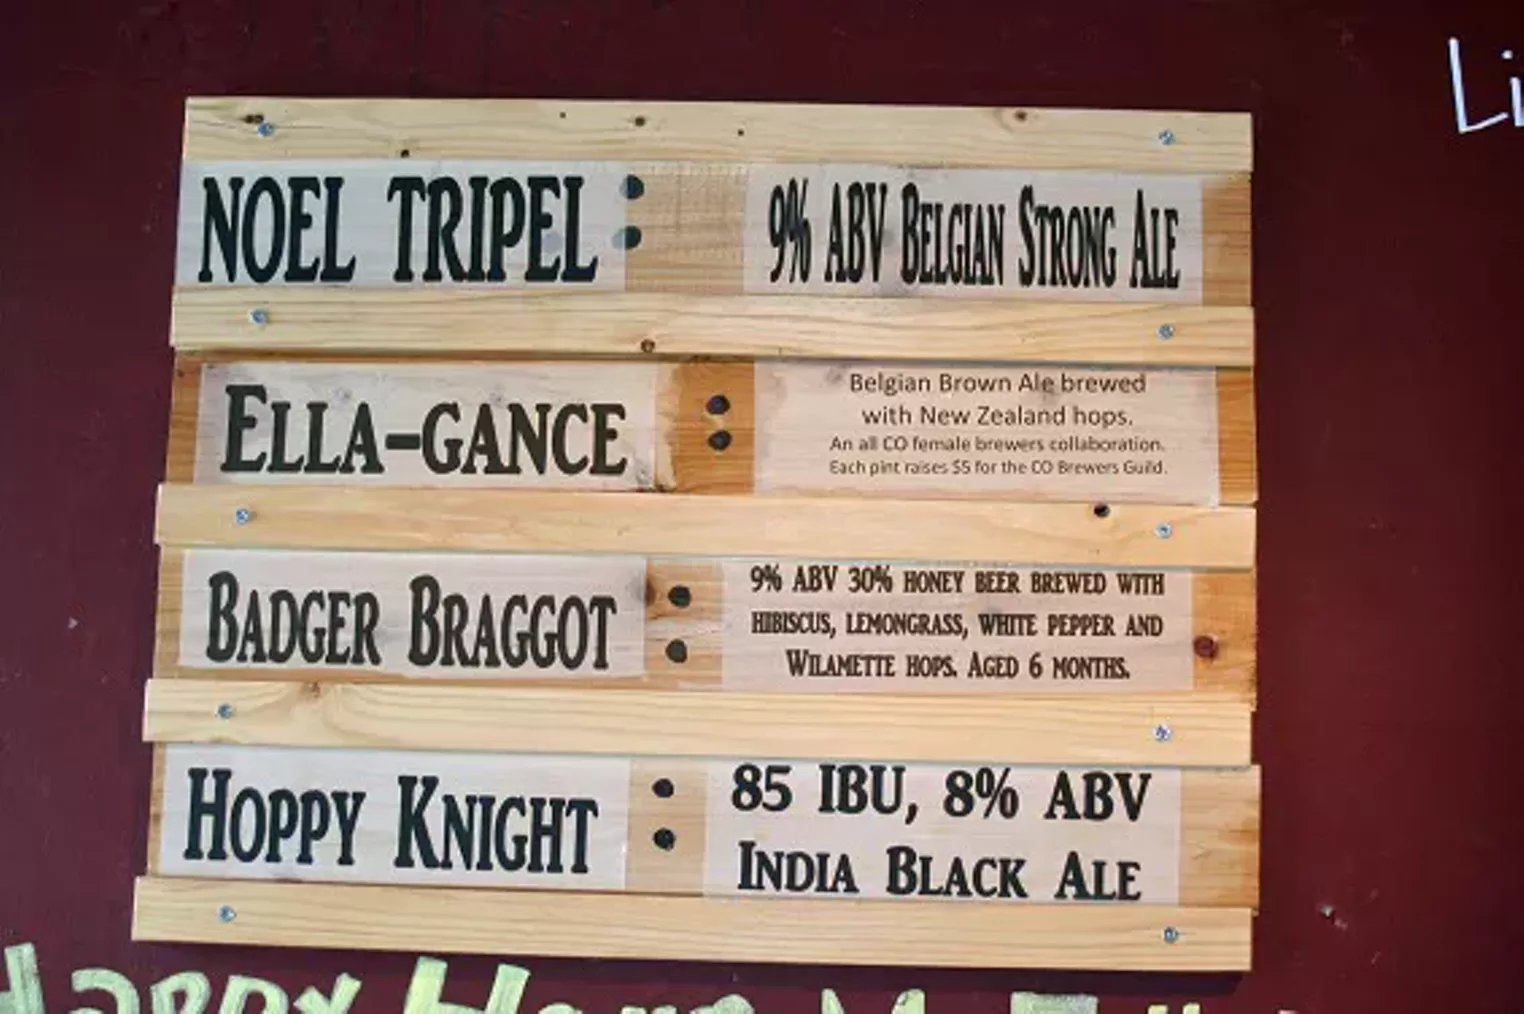 Li
NOEL TRIPEL : 9% ABV BELGIAN STRONG ALE
ELLA-GANCE :
Belgian Brown Ale brewed
with New Zealand hops.
An all CO female brewers collaboration.
Each pint raises $5 for the CO Brewers Guild.
BADGER BRAGGOT :
9% ABV 30% HONEY BEER BREWED WITH
HIBISCUS, LEMONGRASS, WHITE PEPPER AND
WILAMETTE HOPS. AGED 6 MONTHS.
HOPPY KNIGHT :
85 IBU, 8% ABV
INDIA BLACK ALE
Happy Hour M-F